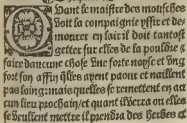 Uant le maistre des mousches
voit la compaignie yssir et des
mourer en lair il doit tantost
getter sur elles de la pouldre &
faire daucune chose vne forte noyse et vng
fort son affin qlles ayent paour et naillent
pas loing: mais quelles se remettent en au
cun lieu prochain/ et quant il verra on elles
se veullent mettre il prendra des herbes et